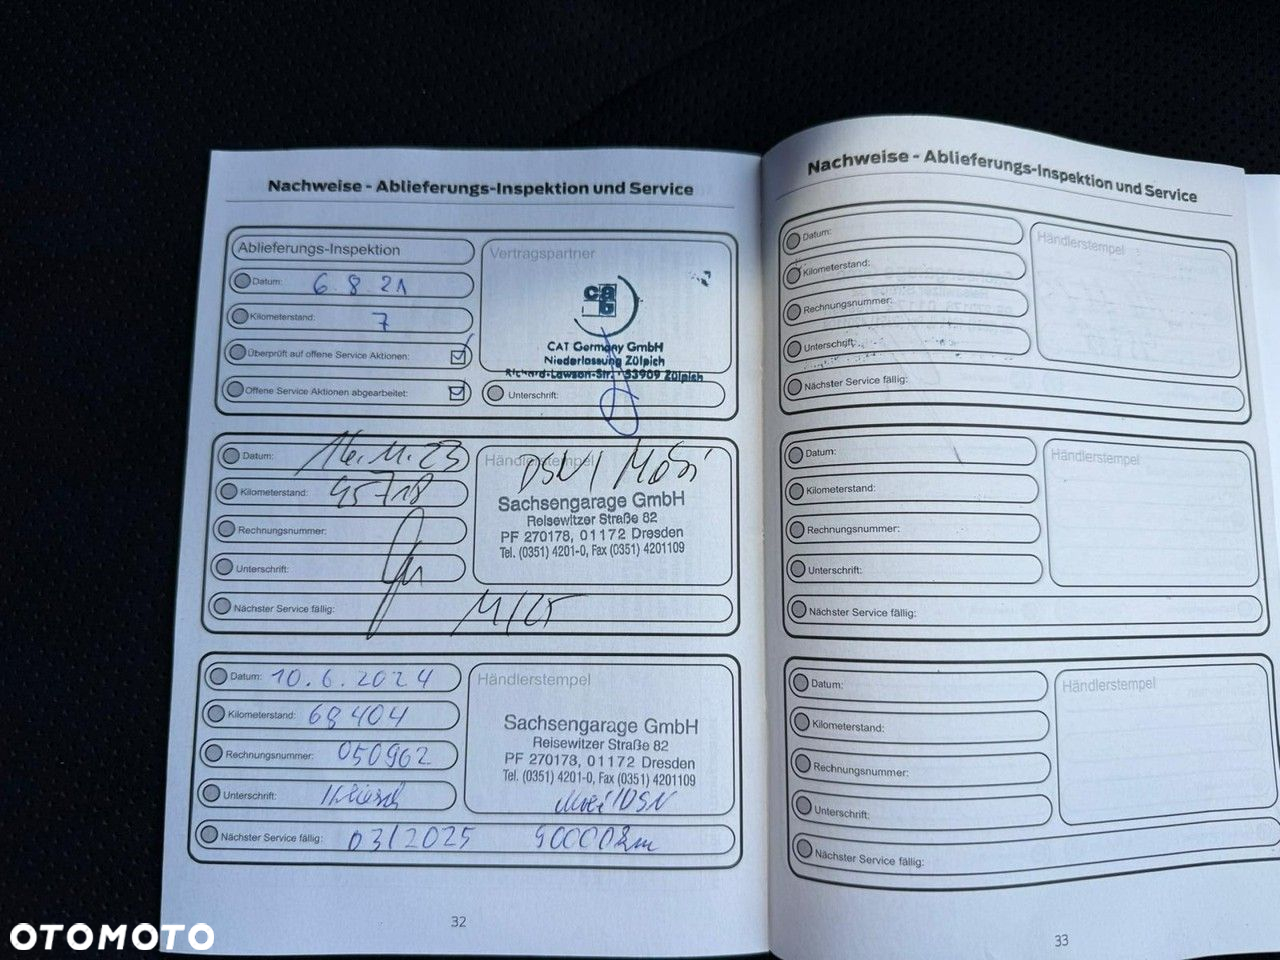 Nachweise - Ablieferungs-Inspektion und Service
Ablieferungs-Inspektion
Datum: 6.8.21
Kilometerstand: 7
Überprüft auf offene Service Aktionen:
Offene Service Aktionen abgearbeitet:
Vertragspartner
cat
CAT Germany GmbH
Niederlassung Zülpich
Richard-Lawson-Str. 53909 Zülpich
Unterschrift:
Datum: 16.11.23
Kilometerstand: 45718
Rechnungsnummer:
Unterschrift:
Nächster Service fällig: 11/25
Händlerstempel
DSN/
Sachsengarage GmbH
Reisewitzer Straße 82
PF 270178, 01172 Dresden
Tel. (0351) 4201-0, Fax (0351) 4201109
Datum: 10.6.2024
Kilometerstand: 68404
Rechnungsnummer: 050962
Unterschrift:
Nächster Service fällig: 03/2025 90000km
Händlerstempel
Sachsengarage GmbH
Reisewitzer Straße 82
PF 270178, 01172 Dresden
Tel. (0351) 4201-0, Fax (0351) 4201109
32
Nachweise - Ablieferungs-Inspektion und Service
Datum:
Kilometerstand:
Rechnungsnummer:
Unterschrift:
Nächster Service fällig:
Händlerstempel
Datum:
Kilometerstand:
Rechnungsnummer:
Unterschrift:
Nächster Service fällig:
Händlerstempel
Datum:
Kilometerstand:
Rechnungsnummer:
Unterschrift:
Nächster Service fällig:
Händlerstempel
33
OTOMOTO